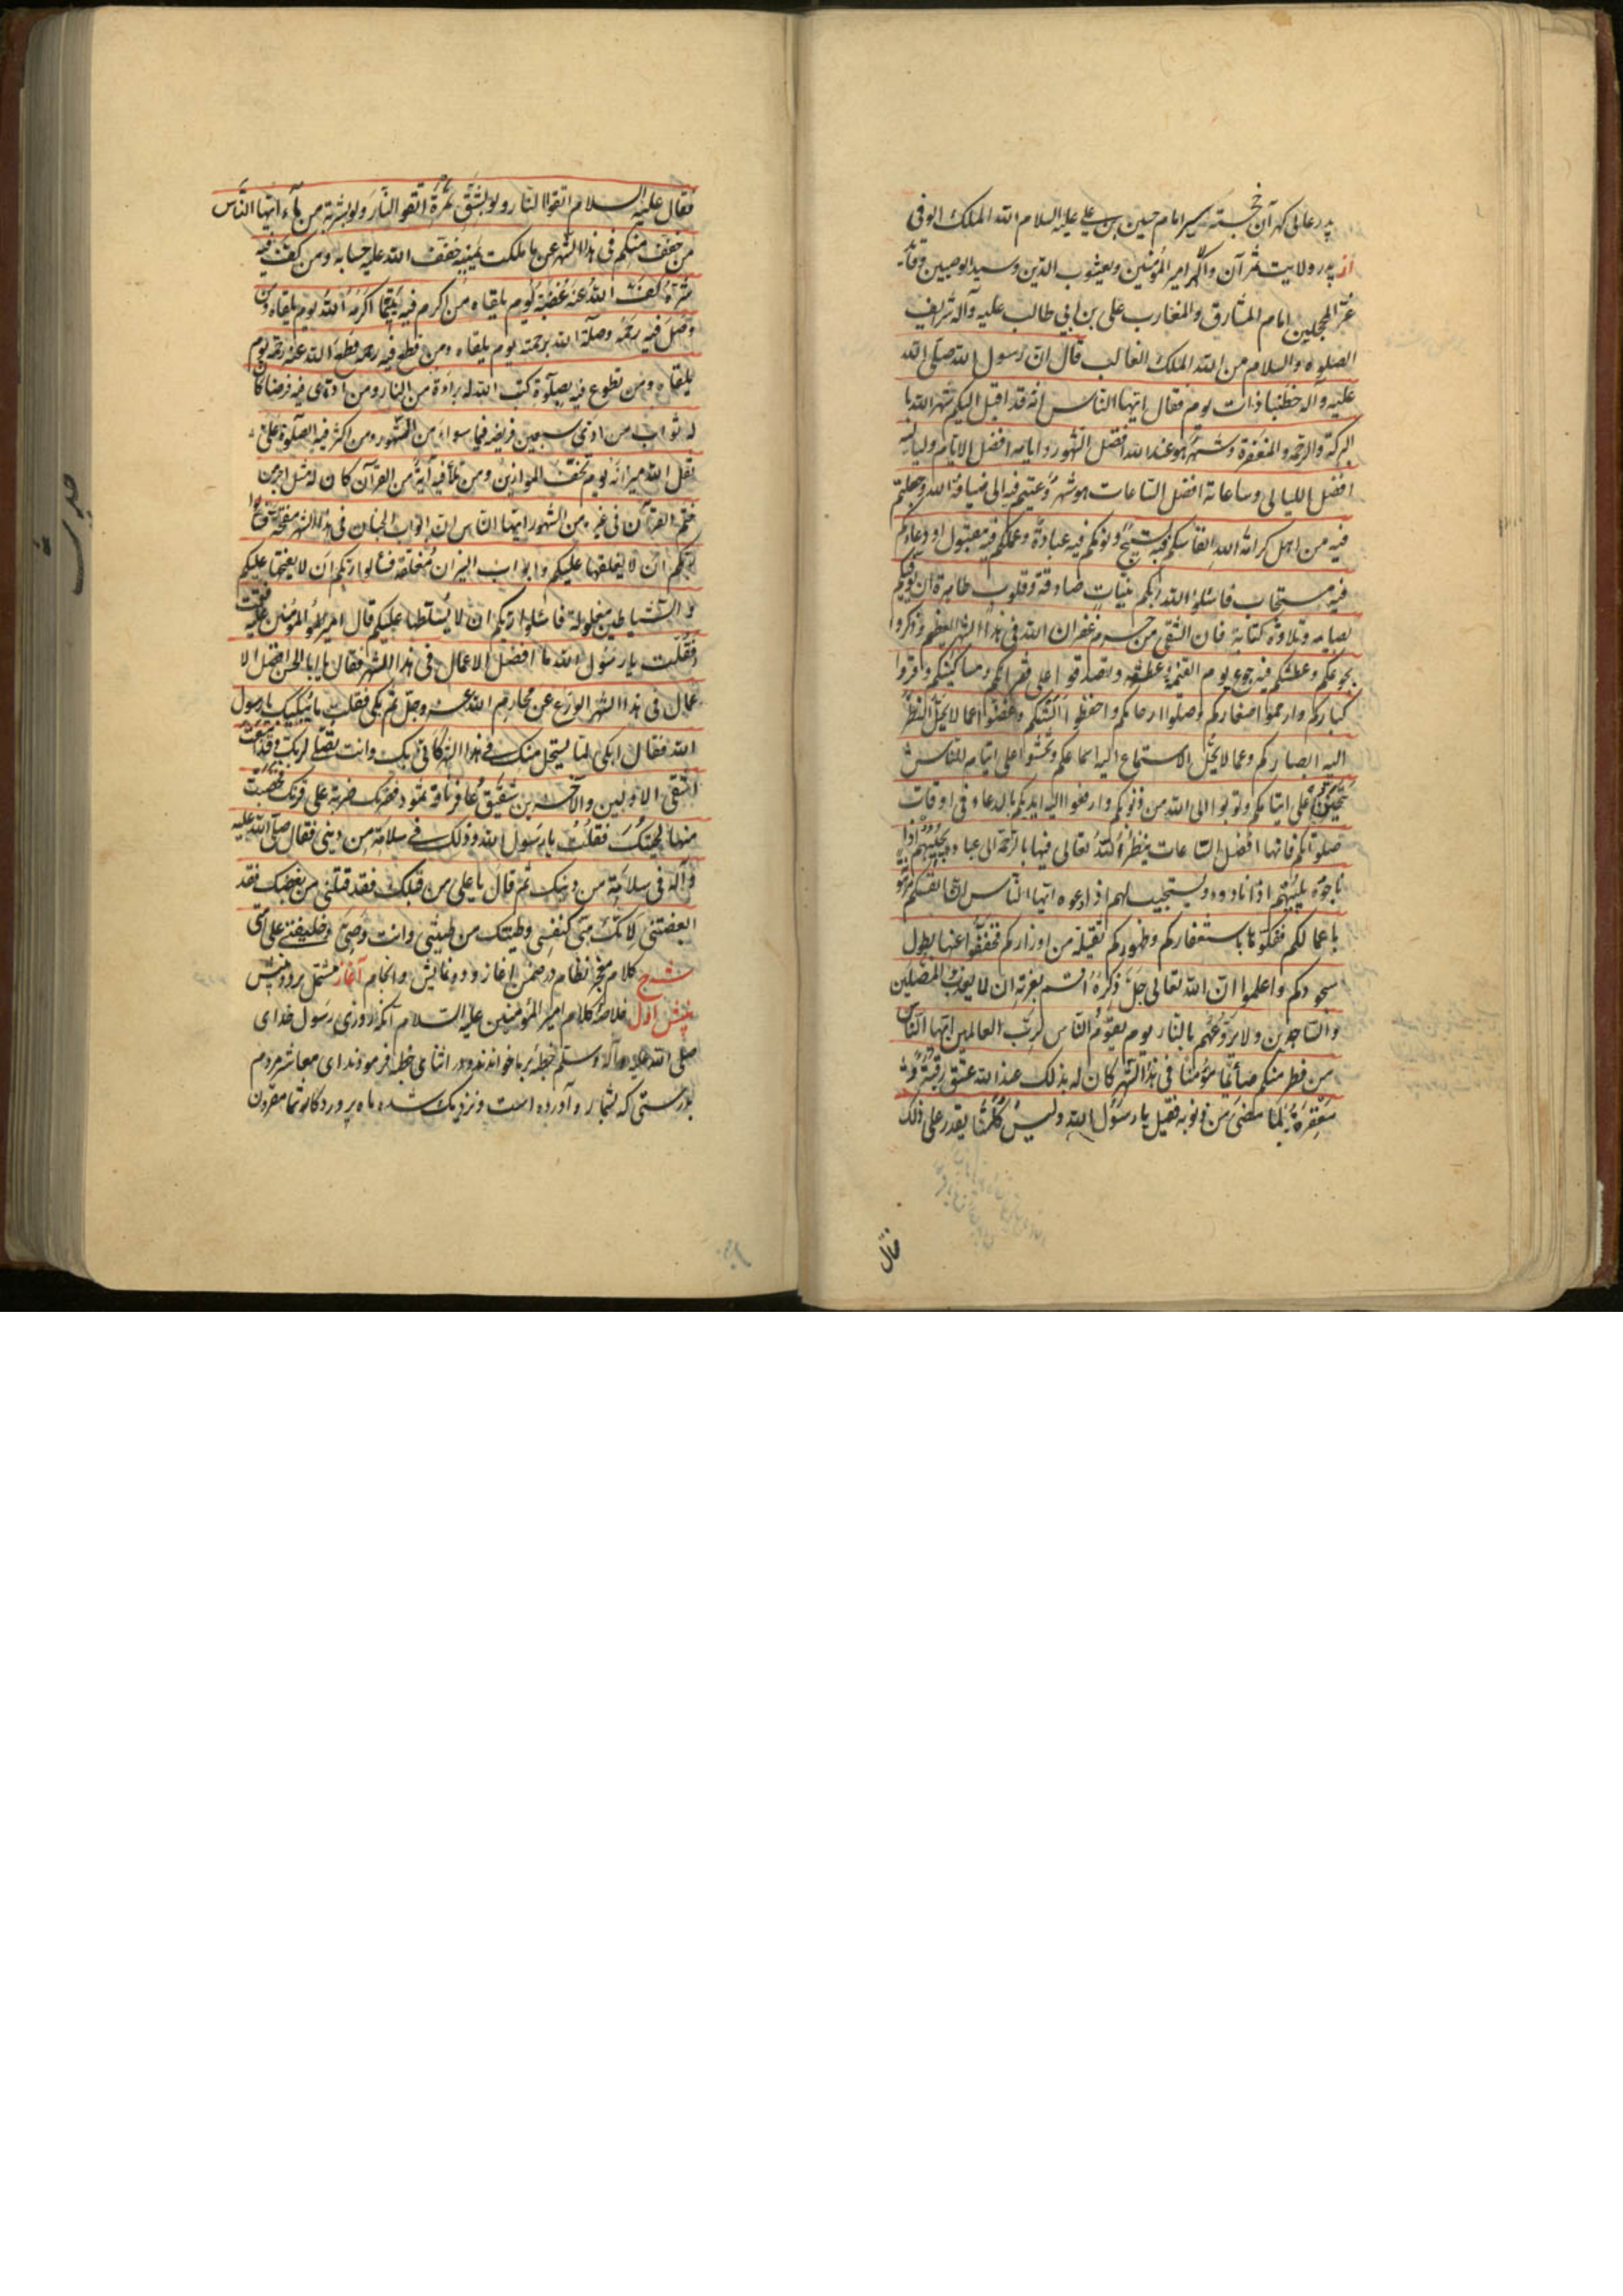 پدر عالی گهر آن خجسته سیر امام حسین بن علی علیه السلام الله الملک الوفی
از پدر ولایت اثر آن والا گهر امیر المؤمنین ویعسوب الدین وسید الوصیین وقائد
غر المحجلین امام المشارق والمغارب علی بن ابی طالب علیه وآله شرایف
الصلوه والسلام من الله الملک الغالب قال ان رسول الله صلی الله
علیه واله خطبنا ذات یوم فقال ایها الناس انه قد اقبل الیکم شهر الله با
لبرکة والرحمه والمغفرة وشهر هو عند الله افضل الشهور وایامه افضل الایام ولیالیه
افضل اللیالی وساعاته افضل الساعات هو شهر دعیتم فیه الی ضیافة الله وجعلتم
فیه من اهل کرامة الله انفاسکم فیه تسبیح ونومکم فیه عبادة وعملکم فیه مقبول ودعاءکم
فیه مستجاب فاسئلوا الله ربکم بنیات صادقة وقلوب طاهرة ان یوفقکم
لصیامه وتلاوة کتابه فان الشقی من حرم غفران الله فی هذا الشهر العظیم واذکروا
بجوعکم وعطشکم فیه جوع یوم القیمة وعطشه وتصدقوا علی فقرائکم ومساکینکم ووقروا
کبارکم وارحموا صغارکم وصلوا ارحامکم واحفظوا السنتکم وغضوا عما لا یحل النظر
الیه ابصارکم وعما لا یحل الاستماع الیه اسماعکم وتحننوا علی ایتام الناس
یتحنن علی ایتامکم وتوبوا الی الله من ذنوبکم وارفعوا الیه ایدیکم بالدعاء فی اوقات
صلوتکم فانها افضل الساعات ینظر الله تعالی فیها بالرحمة الی عباده ویجیبهم اذا
ناجوه یلبیهم اذا نادوه ویستجیب لهم اذا دعوه ایها الناس ان انفسکم مرهونة
باعمالکم ففکوها باستغفارکم وظهورکم ثقیلة من اوزارکم فخففوا عنها بطول
سجودکم واعلموا ان الله تعالی جل ذکره اقسم بعزته ان لا یعذب المصلین
والساجدین ولا یروعهم بالنار یوم یقوم الناس لرب العالمین ایها الناس
من فطر منکم صائما مؤمنا فی هذا الشهر کان له بذلک عند الله عتق رقبة و
مغفرة لما مضی من ذنوبه فقیل یا رسول الله ولیس کلنا یقدر علی ذلک
فقال
فقال علیه السلام اتقوا النار ولو بشق تمرة اتقوا النار ولو بشربة من ماء ایها الناس
من خفف منکم فی هذا الشهر عن ما ملکت یمینه خفف الله علیه حسابه ومن کف فیه
شره کف الله عنه غضبه یوم یلقاه من اکرم فیه یتیما اکرمه الله یوم یلقاه ومن
وصل فیه رحمه وصله الله برحمته یوم یلقاه ومن قطع فیه رحمه قطع الله عنه رحمته یوم
یلقاه ومن تطوع فیه بصلوة کتب الله له براءة من النار ومن ادی فیه فرضا کان
له ثواب من ادی سبعین فریضه فیما سواه من الشهور ومن اکثر فیه الصلوة علی
ثقل الله میزانه یوم تخف الموازین ومن تلا فیه آیة من القرآن کان له مثل اجر من
ختم القرآن فی غیره من الشهور ایها الناس ان ابواب الجنان فی هذا الشهر مفتحة فسئلوا
ربکم ان لا یغلقها علیکم وابواب النیران مغلقة فسئلوا ربکم ان لا یفتحها علیکم
والشیاطین مغلولة فاسئلوا ربکم ان لا یسلطها علیکم قال امیر المؤمنین علیه فقمت
فقلت یا رسول الله ما افضل الاعمال فی هذا الشهر فقال یا ابا الحسن افضل الا
عمال فی هذا الشهر الورع عن محارم الله عز وجل ثم بکی فقلت ما یبکیک یا رسول
الله فقال ابکی لما یستحل منک فی هذا الشهر کانی بک وانت تصلی لربک وقد انبعث
اشقی الاولین والآخرین شقیق عاقر ناقة ثمود فضربک ضربة علی قرنک فخضبت
منها لحیتک فقلت یا رسول الله وذلک فی سلامة من دینی فقال صلی الله علیه
وآله فی سلامة من دینک ثم قال یا علی من قتلک فقد قتلنی من بغضک فقد
ابغضتنی لانک منی کنفسی وطینتک من طینتی وانت وصیی وخلیفتی علی امتی
شرح کلام معجز نظام در ضمن اغاز ودو نمایش وانجام آغاز مشتمل بر دو منش
منش اول خلاصه کلام امیر المؤمنین علیه السلام آنکه روزی رسول خدای
صلی الله علیه وآله وسلم خطبه بر ما خواندند ودر اثنای خطبه فرمودند ای معاشر مردم
بدرستی که بشما رو آورده است ونزدیک شده ماه پروردگار شما مقرون